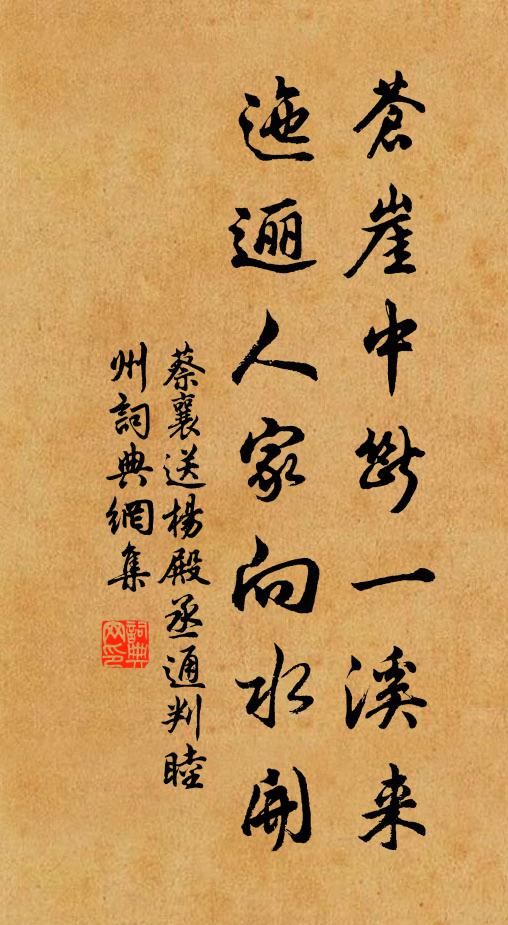 蒼崖中斷一溪来
迤逦人家向水開
蔡襄送楊殿丞通判睦
州詞典網集
詞典
网印